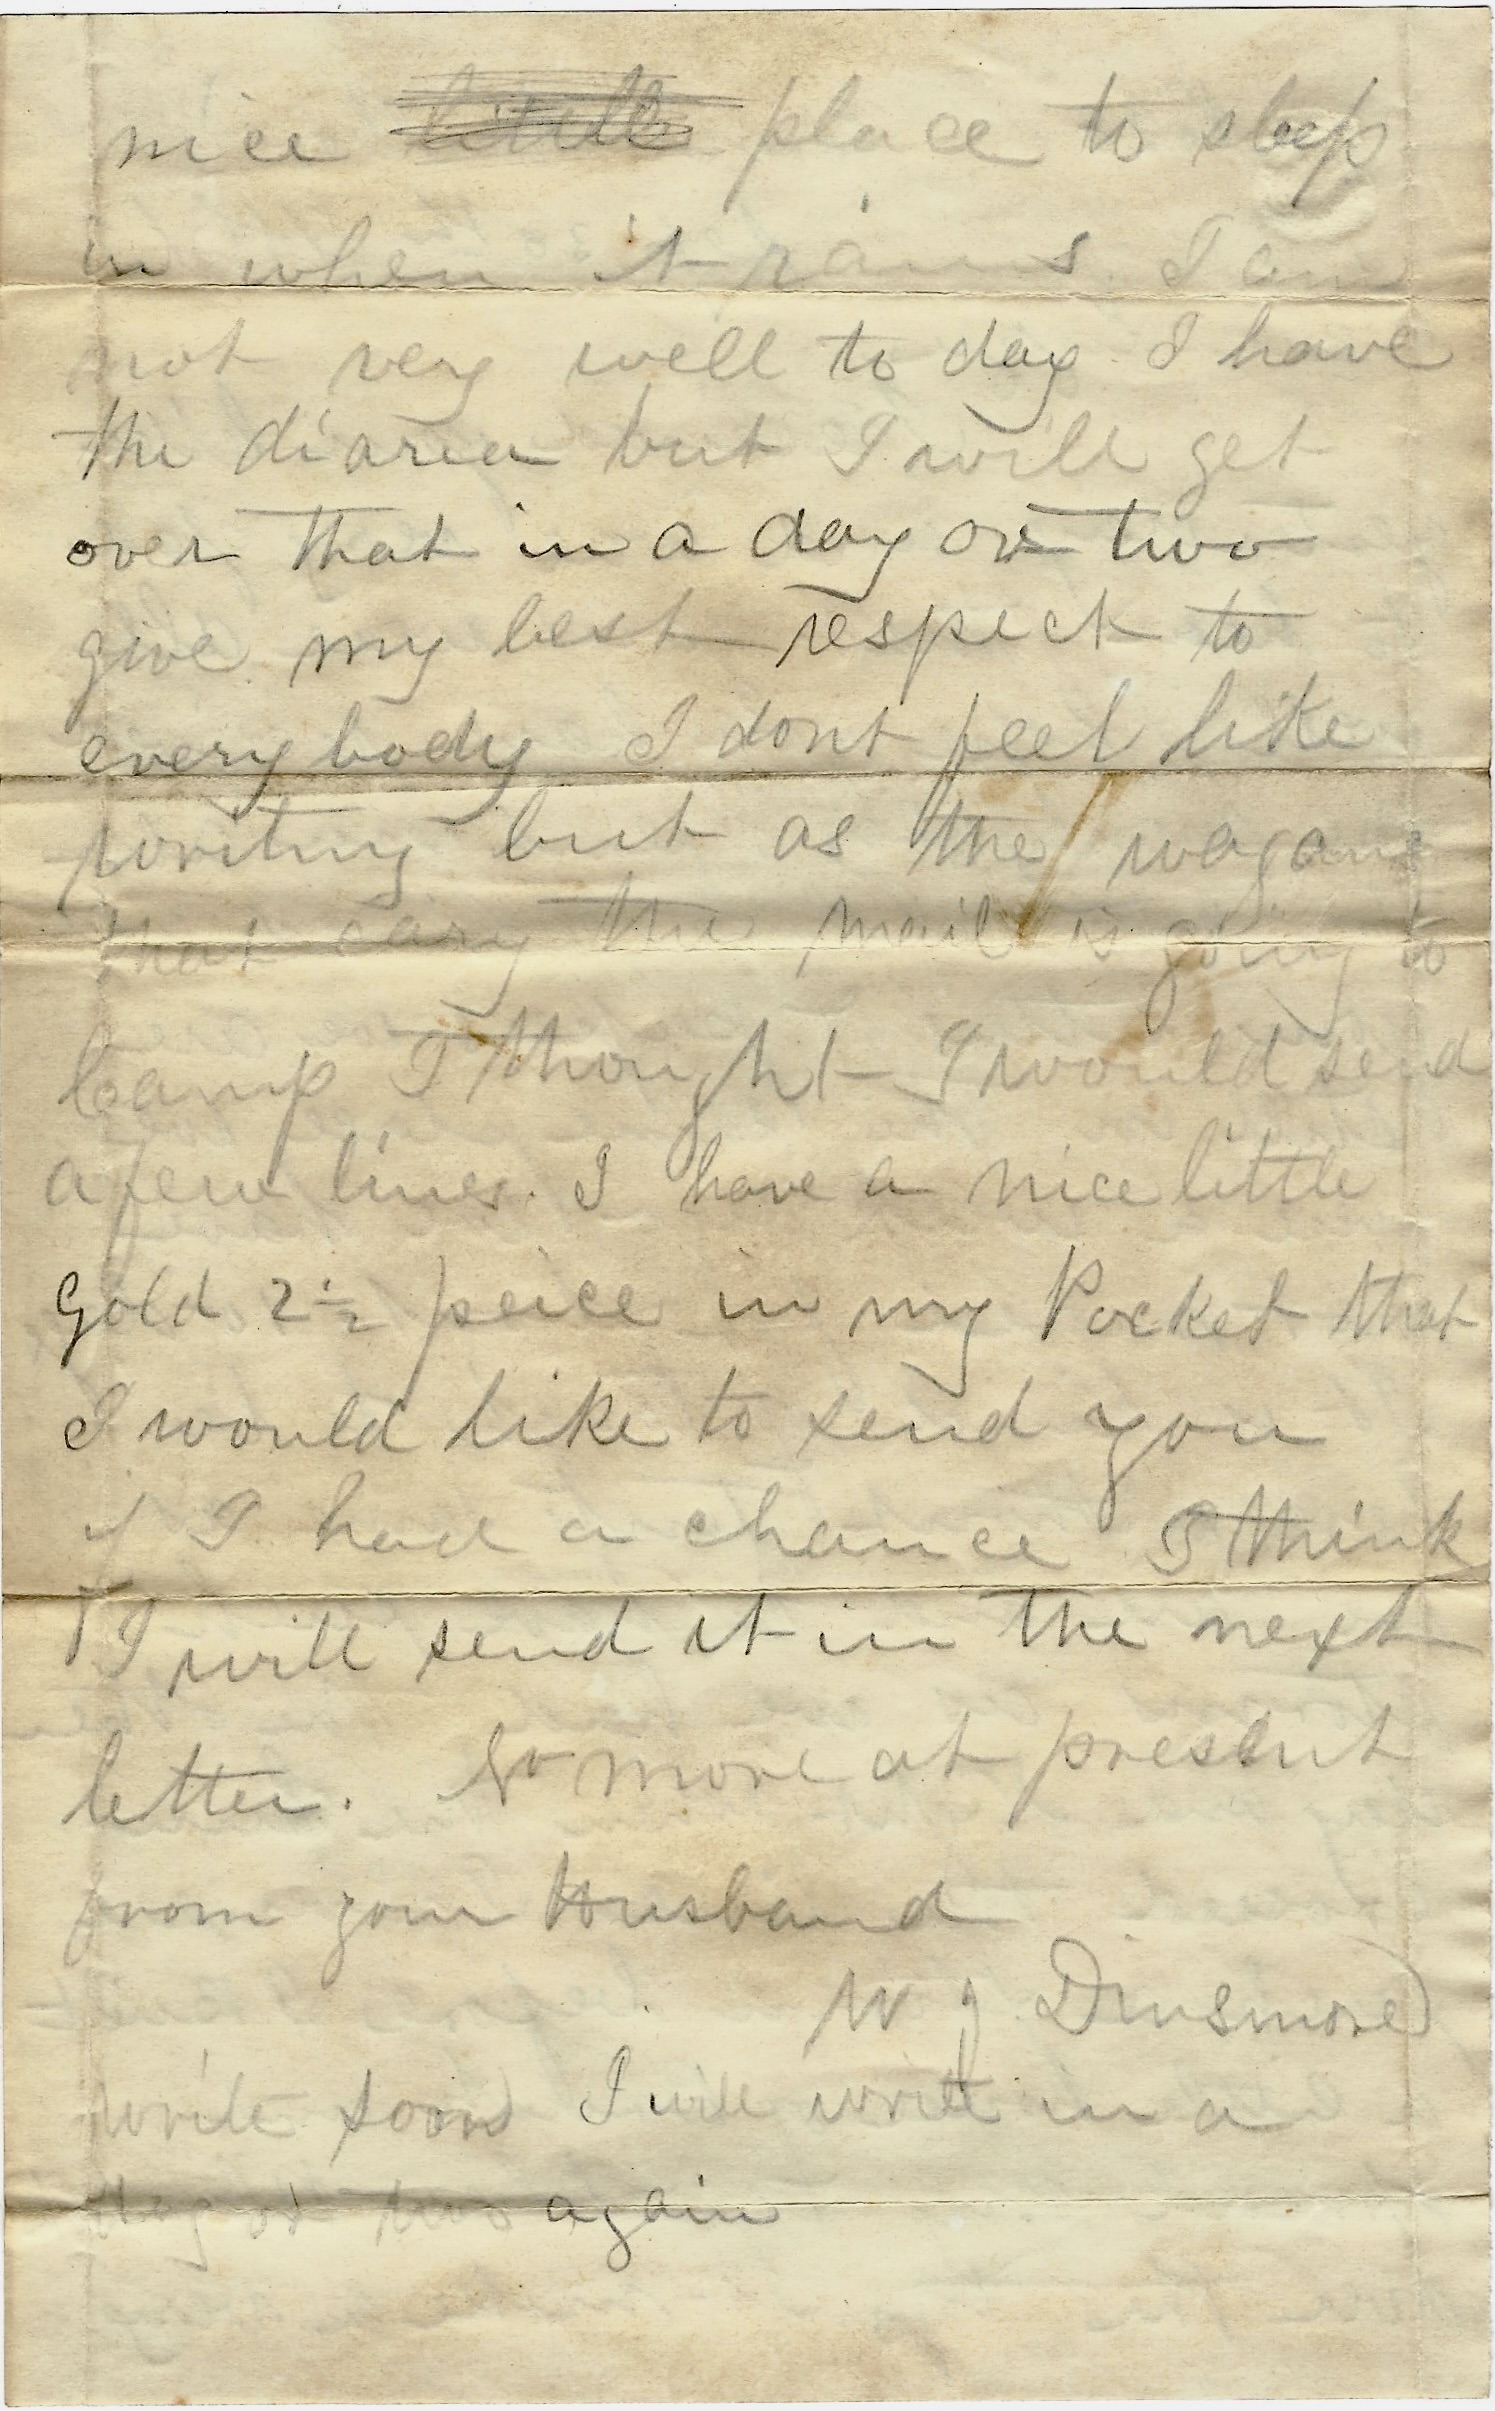 nice little place to sleep
in when it rains. I am
not very well to day. I have
the diarea but I will get
over that in a day or two
give my best respect to
every body I dont feel like
writing but as the wagans
that cary the mail is going to
Camp I thought I would send
a few lines. I have a nice little
gold 2 1/2 peice in my Pocket that
I would like to send you
if I had a chance I think
I will send it in the next
letter. No more at present
from your Husband
W J Dinsmore
write soon I will write in a
day or two again